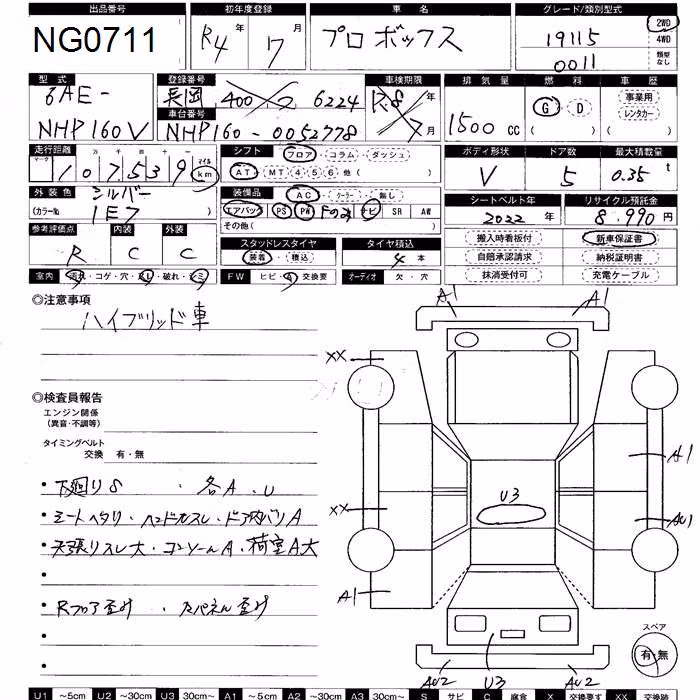 出品番号 初年度登録 車名 グレード/類別型式
NG0711 R4年 7月 プロボックス 19115 0011 2WD 4WD 類型なし
型式 登録番号 車検期限 排気量 燃料 車歴
6AE- 長岡 400 6224 R.8年 7月 1500cc G D ( ) 事業用 レンタカー ( )
車台番号
NHP160V NHP160-0052778
走行距離 シフト フロア・コラム・ダッシュ ボディ形状 ドア数 最大積載量
マーク 十万千百十一 107539 マイル km AT・MT 4 5 6 他( ) V 5 0.35t
外装色 シルバー 装備品 AC・クーラー・無し シートベルト年 リサイクル預託金
(カラーNo. 1E7 ) エアバック PS PW Fのみ ナビ SR AW 2022 8.990円
その他( )
参考評価点 内装 外装 スタッドレスタイヤ タイヤ積込 搬入時看板付 新車保証書
R C C 装着・積込 4本 自賠承認請求 納税証明書
室内 汚れ・コゲ・穴・スレ・破れ・シミ FW ヒビ・A 交換要 オーディオ 欠・穴 抹消受付可 充電ケーブル
◎注意事項
ハイブリッド車
◎検査員報告
エンジン関係
(異音・不調等)
タイミングベルト
交換 有・無
・下廻りS ・各A・U
・シートヘタリ・ハンドルスレ・ドア内バリA
・天張りスレ大・コンソールA・荷室A大
・
・Rフロア歪み ・Bパネル歪み
・
・
A1 A1
XX
A1
U3
XX AU1
A1
スペア
有 無
AU2 U3 AU2
U1 ~5cm U2 ~30cm U3 30cm~ A1 ~5cm A2 ~30cm A3 30cm~ S サビ C 腐食 X 交換要 XX 交換跡